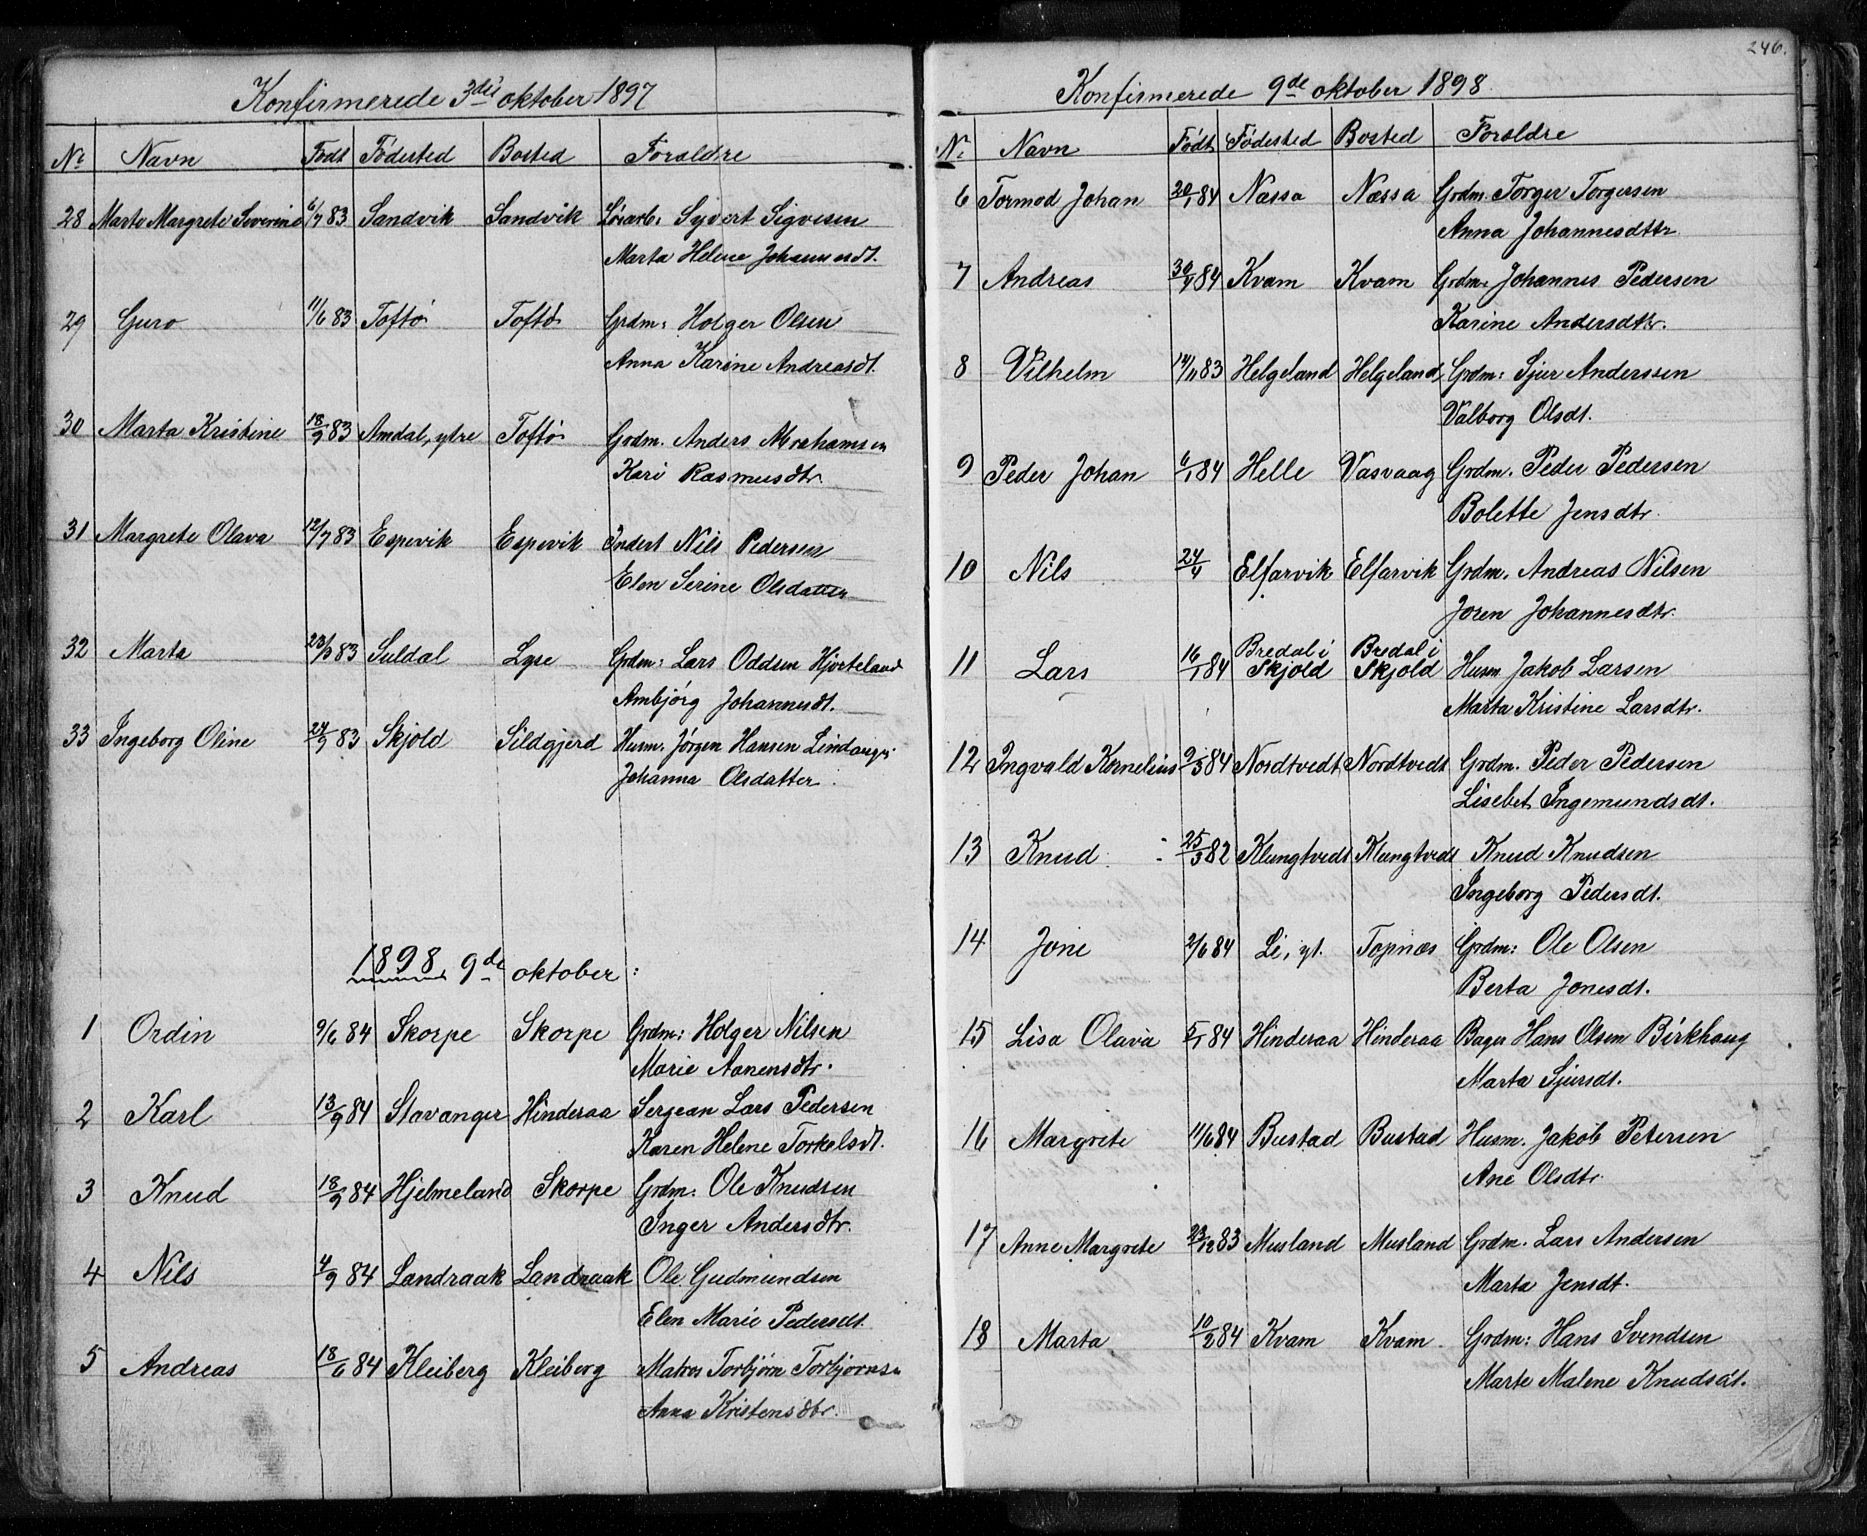 Konfirmerede 3die oktober 1897
Nr Navn Født Fødested Bosted Foræld​re
28 Marte Margrete Severine 6/7 83 Sandvik Sandvik Løsarb: Syvert Sigvesen
Marta Helene Johannesdt.
29 Guro 11/6 83 Toftø Toftø Grdm: Holger Olsen
Anna Karine Andreasdt.
30 Marta Kristine 18/9 83 Amdal, ytre Toftø Grdm. Anders Abrahamsen
Kari Rasmusdtr.
31 Margrete Olava 12/7 83 Espevik Espevik Inderst Nils Pedersen
Elen Serine Olsdatter
32 Marta 23/3 83 Suldal Lyse Grdm: Lars Oddsen Hjorteland
Ambjørg Johannesdt.
33 Ingeborg Oline 24/9 83 Skjold Sildgjerd Husm. Jørgen Hansen
Johanna Olsdatter.
1898 9de oktober:
1 Ordin 9/6 84 Skorpe Skorpe Grdm: Holger Nilsen
Marie Aanensdtr.
2 Karl 13/9 84 Stavanger Hinderaa Sergean Lars Pedersen
Karen Helene Torkelsdt.
3 Knud 18/9 84 Hjelmeland Skorpe Grdm: Ole Knudsen
Inger Andersdtr.
4 Nils 4/9 84 Landraak Landraak Ole Gudmundsen
Elen Marie Pedersdt.
5 Andreas 18/6 84 Kleiberg Kleiberg Matros Torbjørn Torbjørnsn
Anna Kristensdtr.
246.
Konfirmerede 9de oktober 1898.
Nr. Navn Født Fødested Bosted Forældre
6 Tormod Johan 20/1 84 Næssa Næssa Grdm. Torger Torgersen
Anna Johannesdttr
7 Andreas 30/4 84 Kvam Kvam Grdm. Johannes Pedersen
Karine Andersdtr.
8 Vilhelm 14/11 83 Helgeland Helgeland Grdm: Sjur Anderssen
Valborg Olsdt.
9 Peder Johan 6/1 84 Helle Vasvaag Grdm. Peder Pedersen
Bolette Jensdtr.
10 Nils 24/4 Elfarvik Elfarvik Grdm. Andreas Nilsen
Joren Johannesdtr.
11 Lars 16/1 84 Bredal i Skjold Bredal i Skjold Husm. Jakob Larsen
Marta Kristine Larsdtr.
12 Ingvald Kornelius 9/3 84 Nordtvedt Nordtvedt Grdm. Peder Pedersen
Lisebet Ingemundsdt.
13 Knud 25/3 82 Klungtvedt Klungtvedt Knud Knudsen
Ingeborg Pedersdt.
14 Jone 2/6 84 Li, yt. Topnæs Grdm: Ole Olsen
Berta Jonesdt.
15 Lisa Olava 5/1 84 Hinderaa Hinderaa Bager Hans Olsen Birkhaug
Marta Sjursdt.
16 Margrete 11/6 84 Bustad Bustad Husm. Jakob Petersen
Ane Olsdtr.
17 Anne Margrete 23/12 83 Musland Musland Grdm. Lars Andersen
Marta Jensdt.
18 Marta 10/2 84 Kvam Kvam Grdm: Hans Svendsen
Marte Malene Knudsdt.